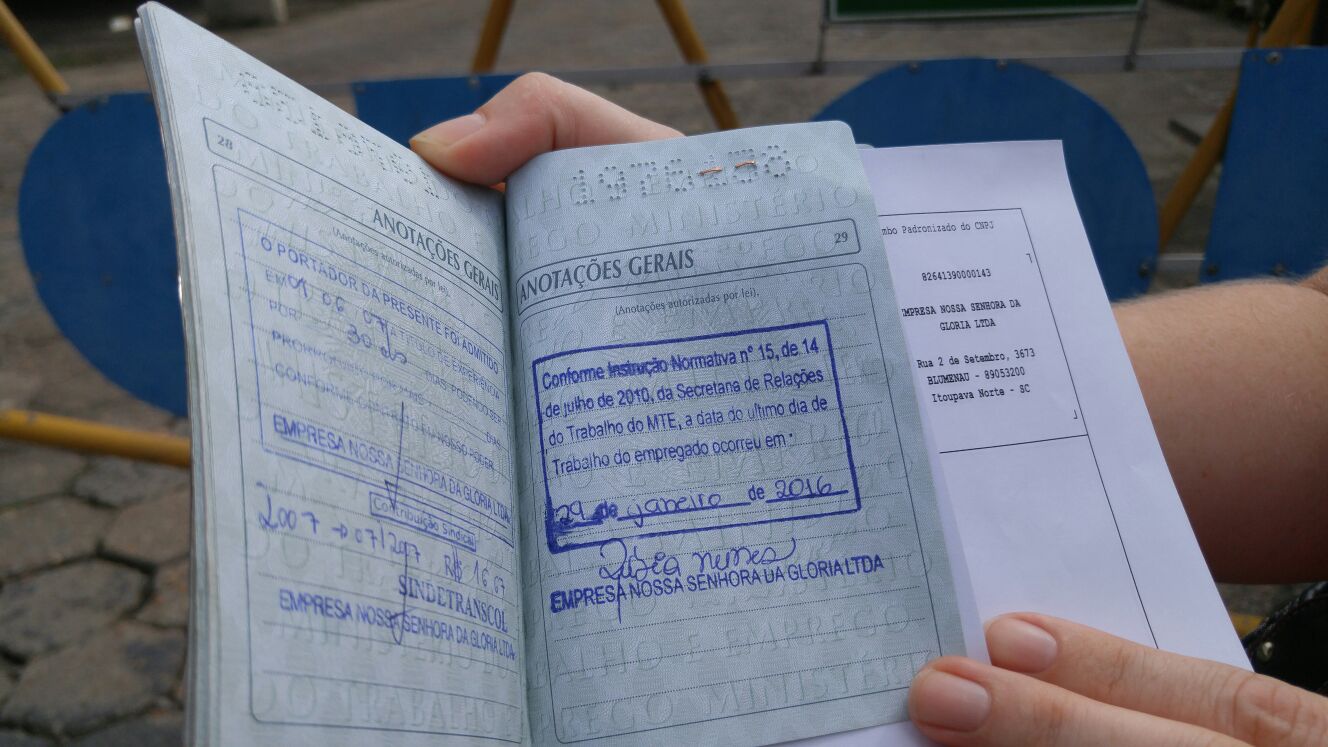 28
ANOTAÇÕES GERAIS
(Anotações autorizadas por lei).
O PORTADOR DA PRESENTE FOI ADMITIDO
EM 01 06 07 A TITULO DE EXPERIÊNCIA
POR 30 ds DIAS, PODENDO SER
DIAS
EMPRESA NOSSA SENHORA DA GLORIA LTDA.
Contribuição Sindical
2007 → 07/2007 R$ 16,67
SINDETRANSCOL
EMPRESA NOSSA SENHORA DA GLORIA LTDA.
29
ANOTAÇÕES GERAIS
(Anotações autorizadas por lei).
Conforme Instrução Normativa n° 15, de 14
de julho de 2010, da Secretaria de Relações
do Trabalho do MTE, a data do ultimo dia de
Trabalho do empregado ocorreu em :
29 de janeiro de 2016
EMPRESA NOSSA SENHORA DA GLORIA LTDA
mbo Padronizado do CNPJ
82641390000143
EMPRESA NOSSA SENHORA DA
GLORIA LTDA
Rua 2 de Setembro, 3673
BLUMENAU - 89053200
Itoupava Norte - SC